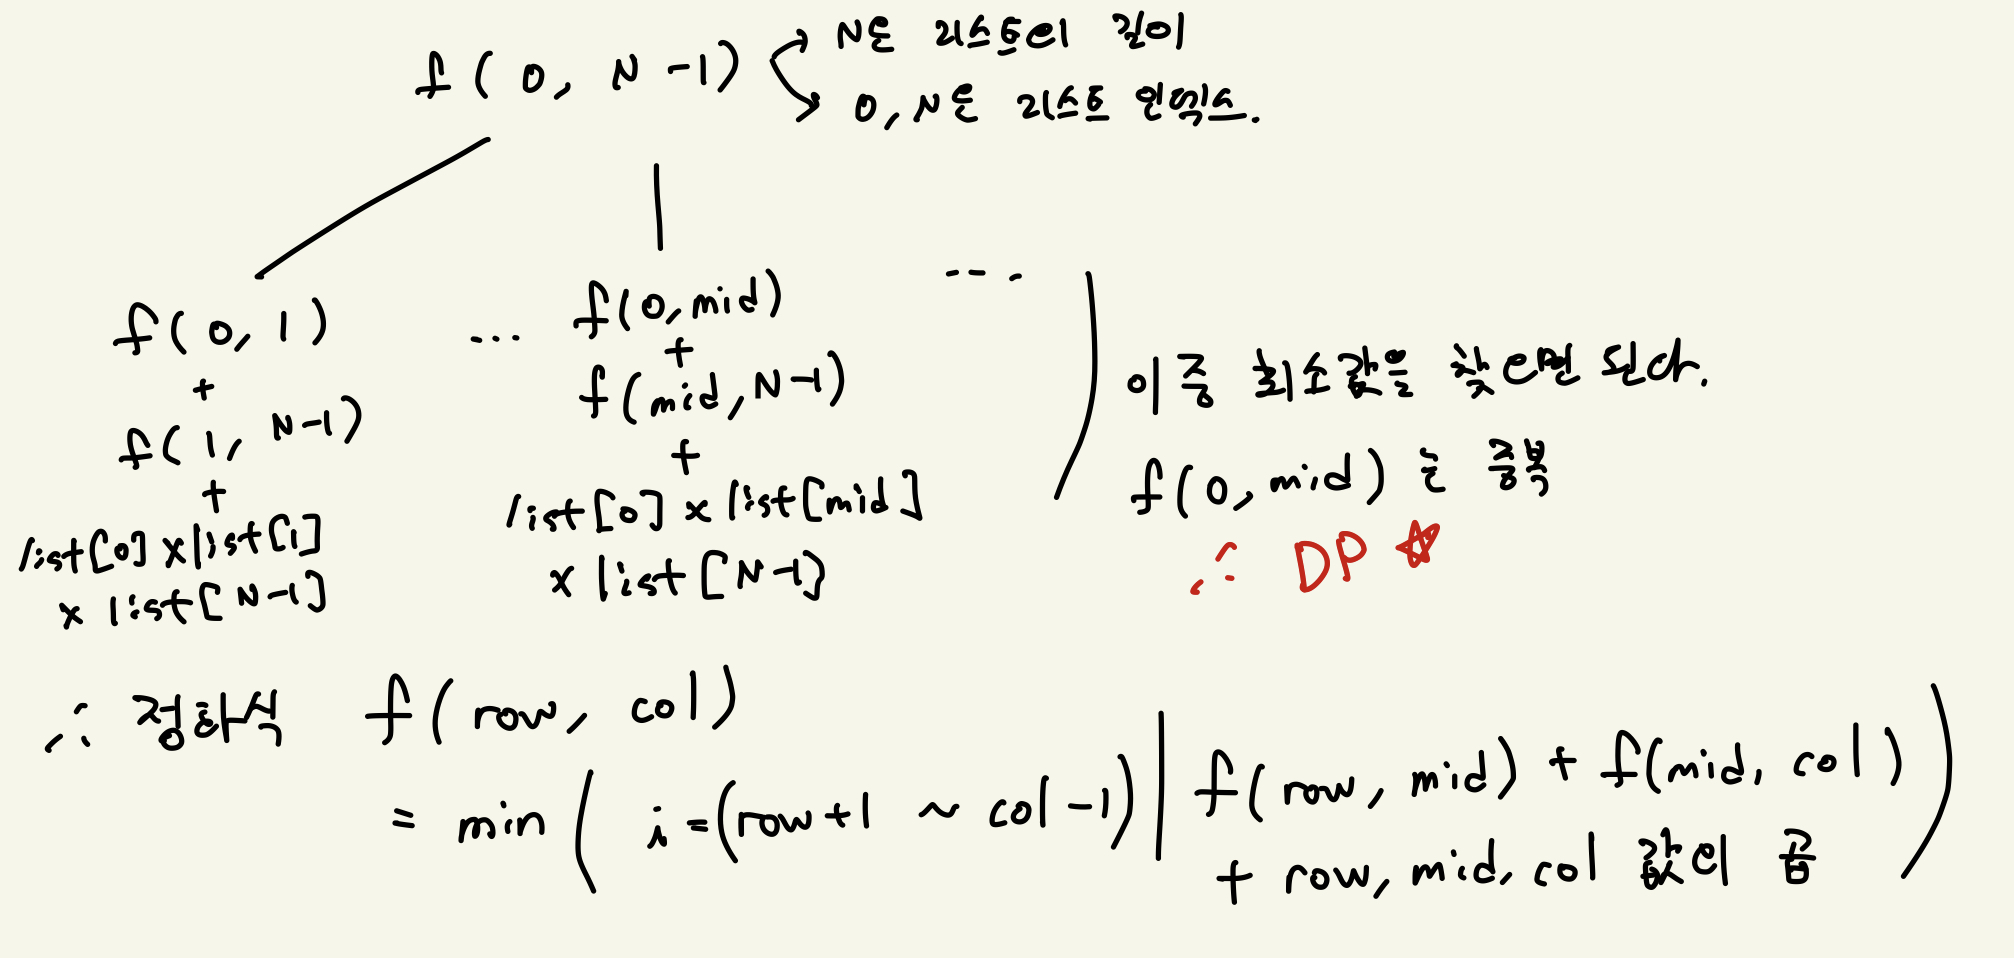 f(0, N-1)
N은 리스트의 길이
0, N은 리스트 인덱스.
f(0, 1)
+
f(1, N-1)
+
list[0] x list[1]
x list[N-1]
...
f(0, mid)
+
f(mid, N-1)
+
list[0] x list[mid]
x list[N-1]
....
이중 최소값을 찾으면 된다.
f(0, mid)는 중복
∴ DP ☆
∴ 점화식 f(row, col)
= min( i=(row+1 ~ col-1) | f(row, mid) + f(mid, col)
+ row, mid, col 값의 곱 )